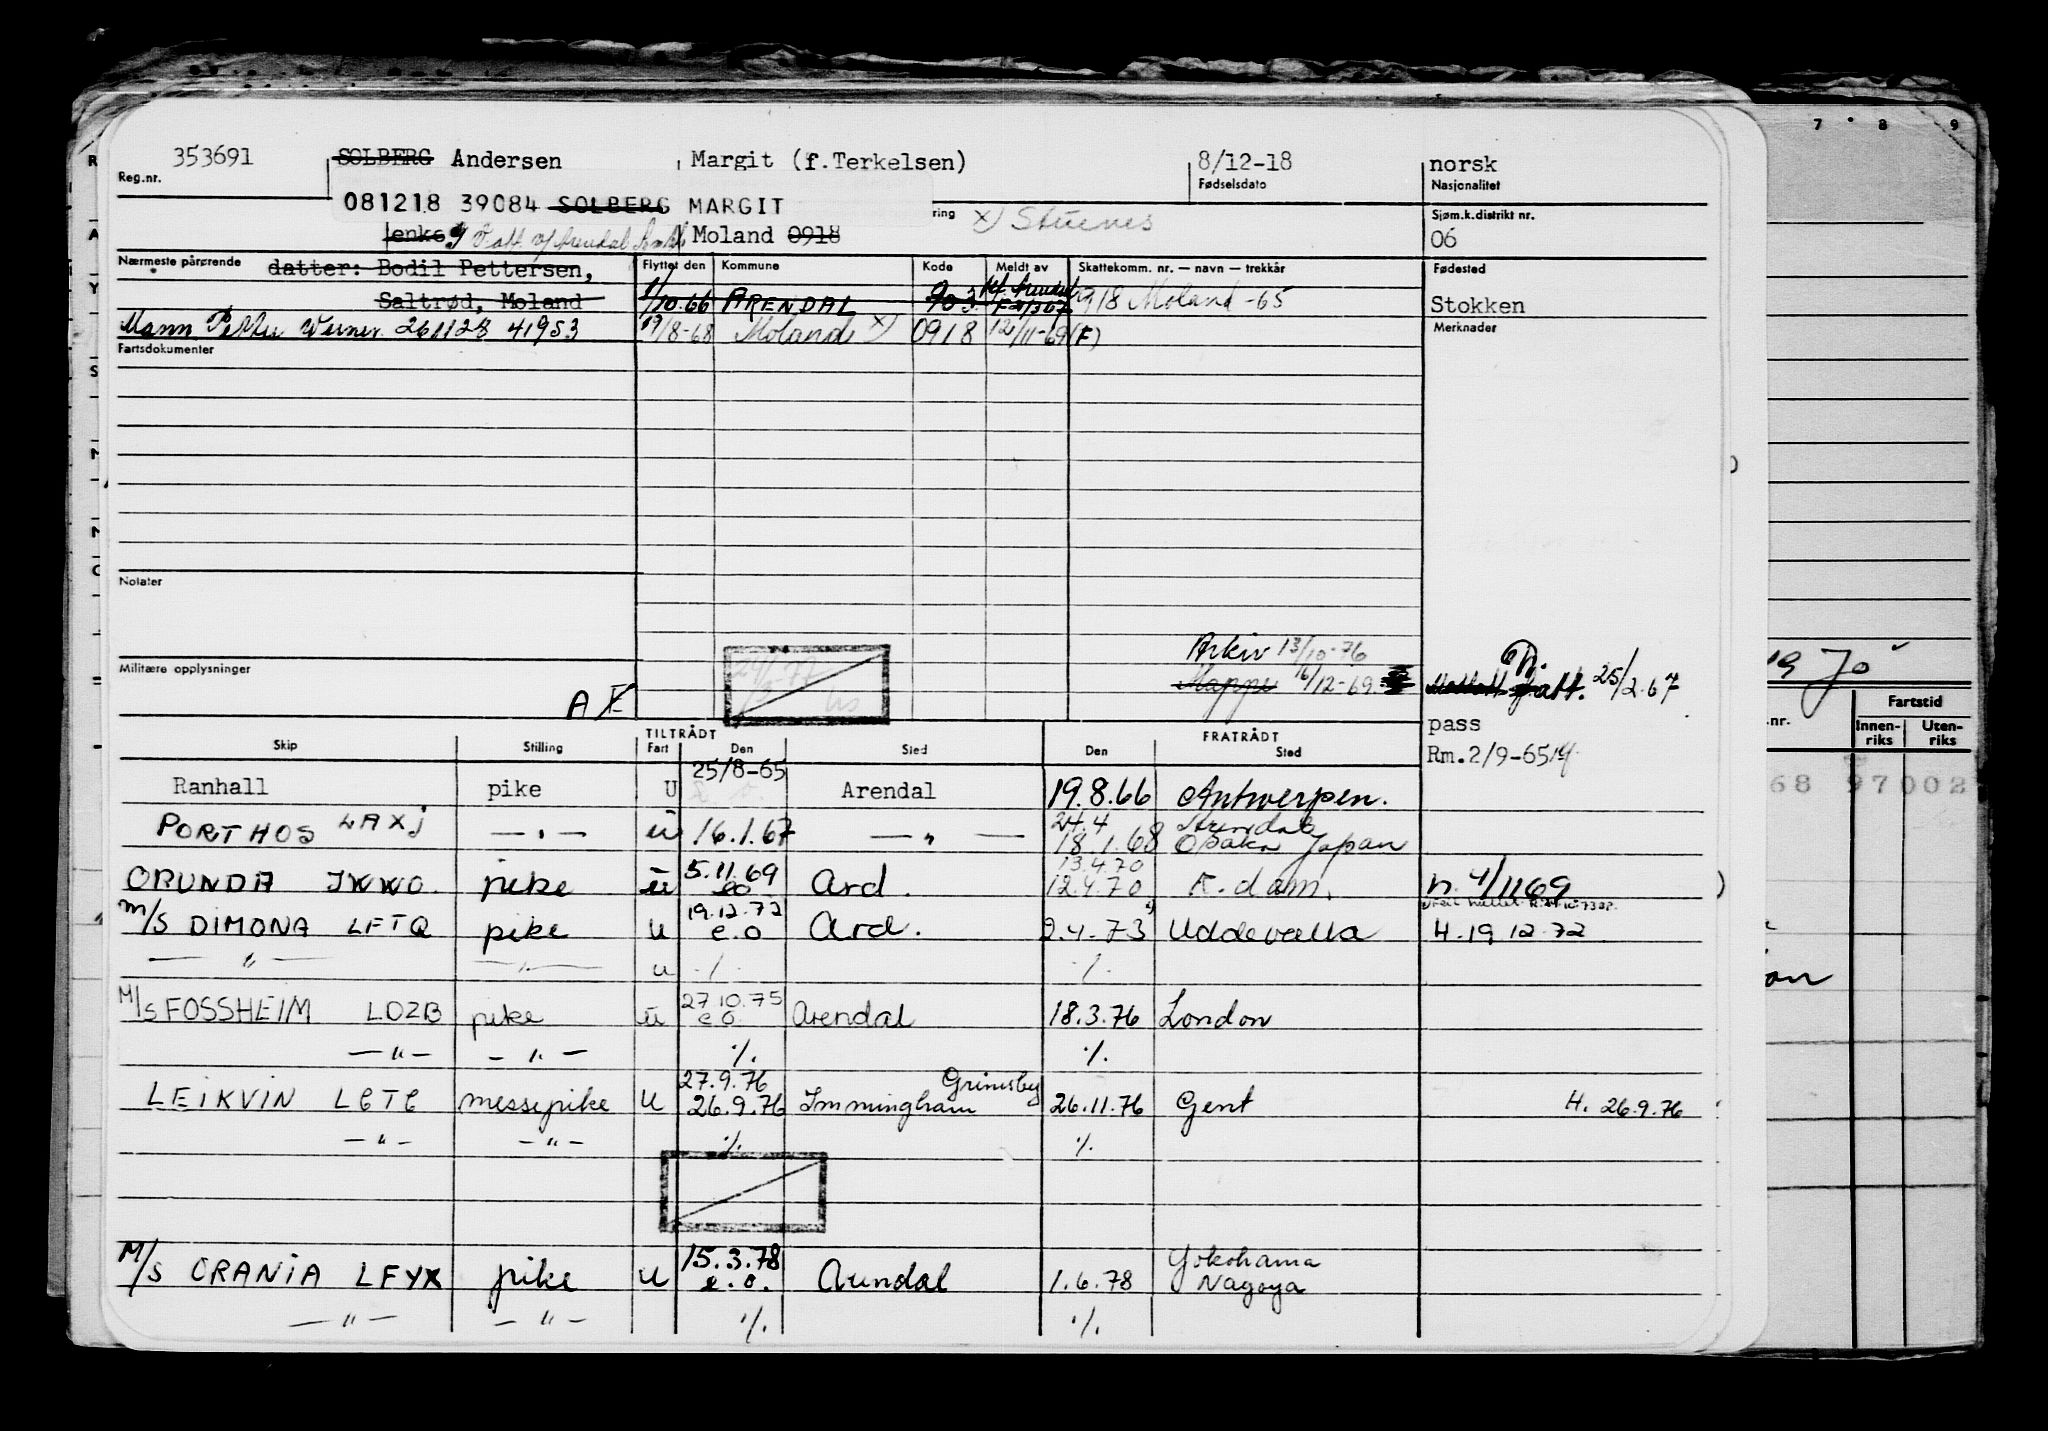 353691 SOLBERG Andersen Margit (f.Terkelsen) 8/12-18 norsk
Reg.nr. Fødselsdato Nasjonalitet
081218 39084 SOLBERG MARGIT ring x) Stuenes Sjøm.k.distrikt nr.
Jenke Moland 0918 06
Nærmeste pårørende datter: Bodil Pettersen, Flyttet den Kommune Kode Meldt av Skattekomm. nr. — navn — trekkår Fødested
Saltrød, Moland 1/10.66 ARENDAL 903 0918 Moland -65 Stokken
Mann Petter Werner 261128 41953 19/8-68 Moland x) 0918 12/11-69 (F) Merknader
Fartsdokumenter
Notater
Arkiv 13/10-76
Militære opplysninger 16/12-69 patt. 25/2.67
A
pass
Skip Stilling TILTRÅDT Fart Den Sted FRATRÅDT Den Sted
Rm.2/9-65
Ranhall pike U 25/8-65 Arendal 19.8.66 Antwerpen.
PORTHOS LAXJ — " — ü 16.1.67 — " — 24.4 Arendal
18.1.68 Osaka Japan
ORUNDA JWWO. pike ü 5.11.69 eo Ard. 13.4.70
12.4.70 R.dam. n. 4/1169
M/S DIMONA LFTQ pike u 19.12.72 e.o Ard. 2.4.73 Uddevalla H.19 12.72
— " — — " — u ./. ./.
M/S FOSSHEIM LDZB pike ü 27.10.75 e o. Arendal 18.3.76 London
— " — — " — ./. ./.
27.9.76 Grimsby
LEIKVIN LCTC messepike U 26.9.76 Immingham 26.11.76 Gent H. 26.9.76
— " — — " — ./. ./.
M/S ORANIA LFYX pike U 15.3.78 e.o. Arendal 1.6.78 Yokohama
Nagoya
— " — — " — ./. ./.
7 8 9
19 Jo
nr. Fartstid
Innen-riks Uten-riks
68 97002